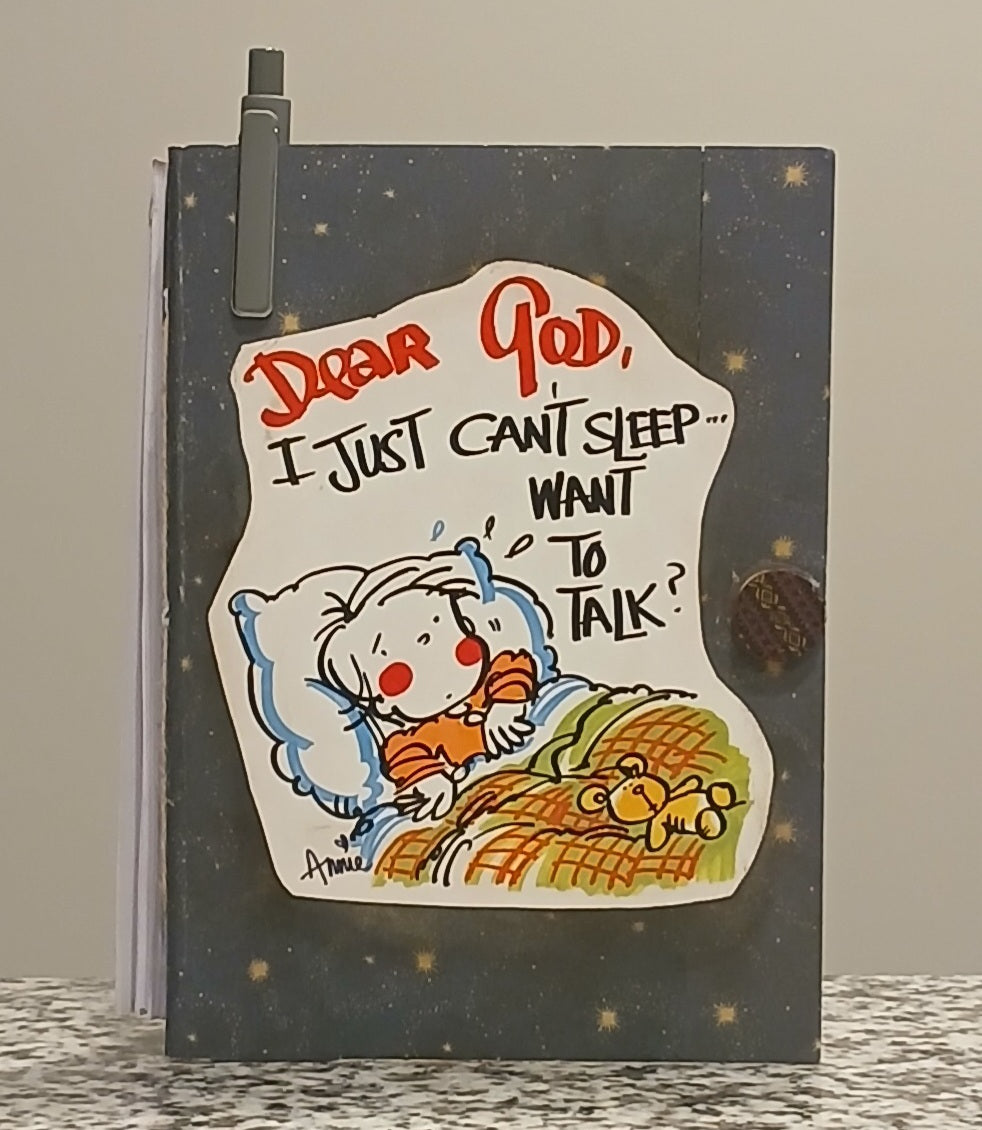 DEAR GOD,
I JUST CAN'T SLEEP...
WANT
TO
TALK?
Annie